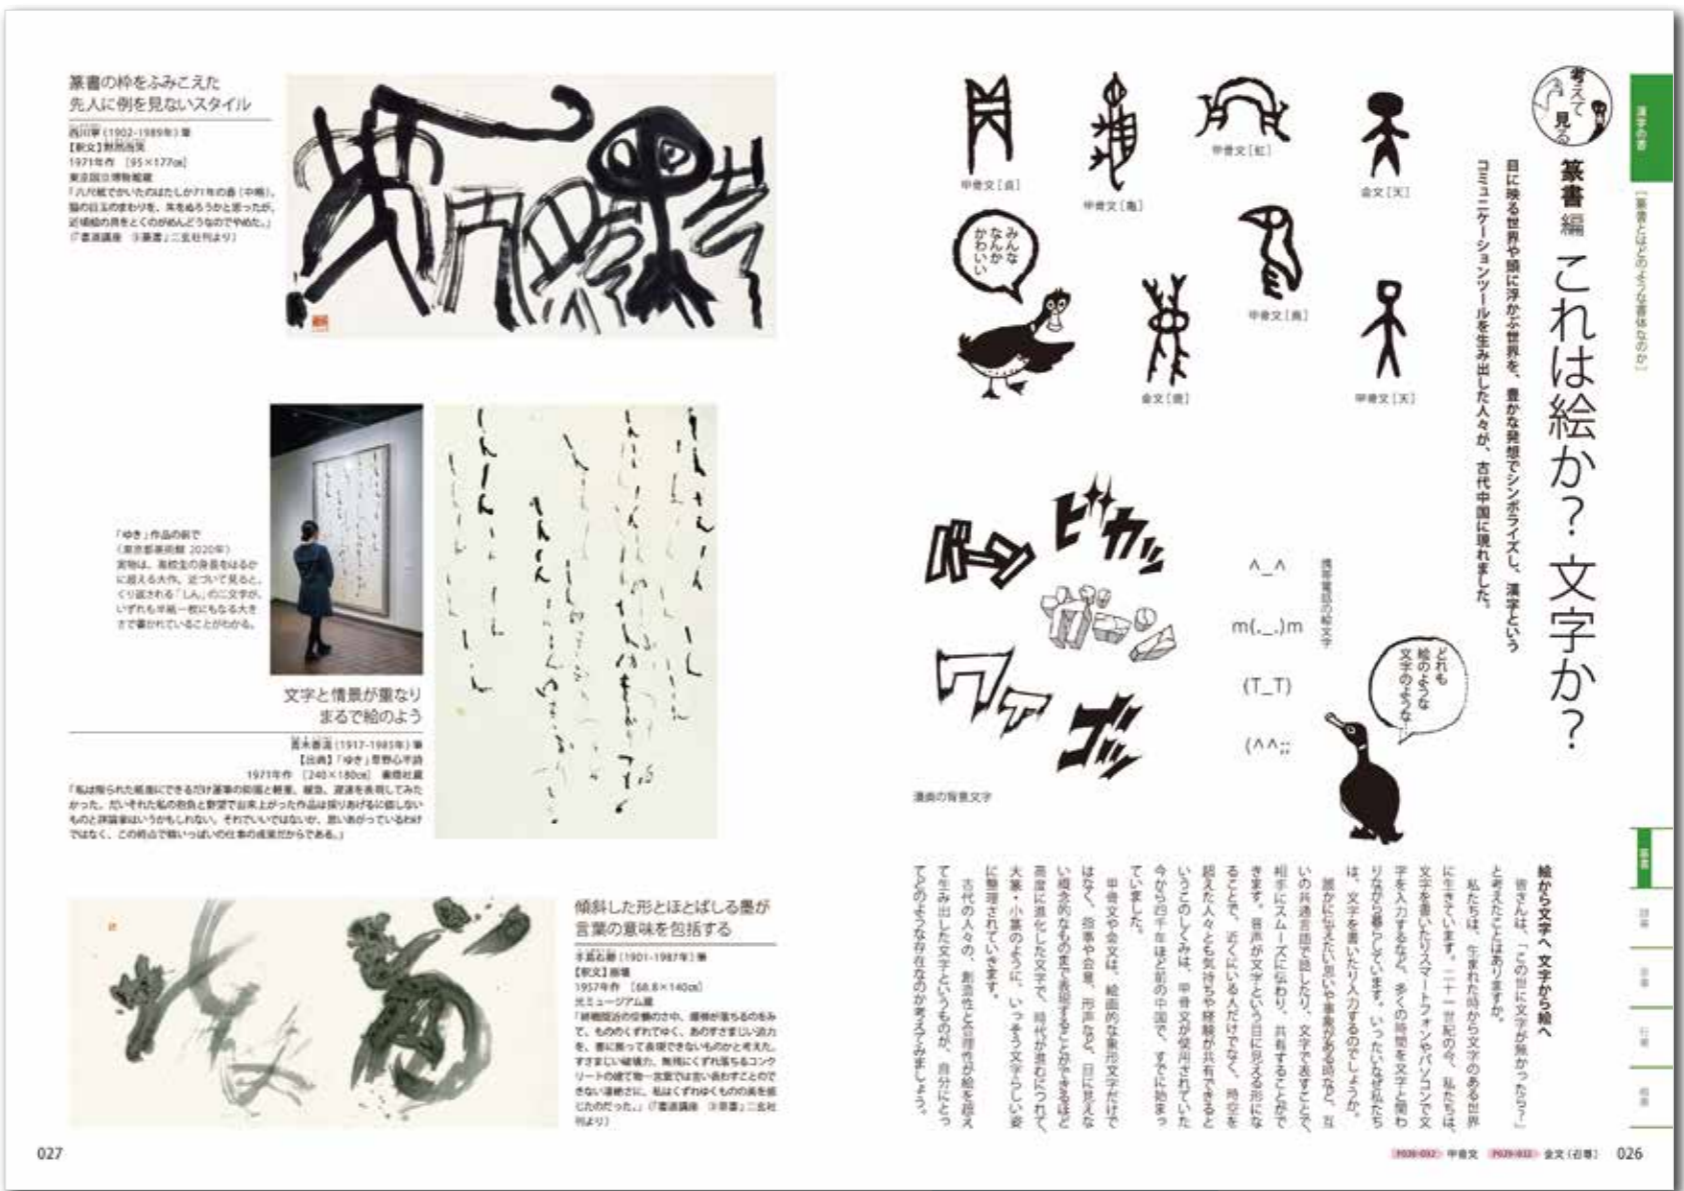 漢字の書
[篆書とはどのような書体なのか]
考えて
見る
篆書編 これは絵か? 文字か?
目に映る世界や頭に浮かぶ世界を、豊かな発想でシンボライズし、漢字という
コミュニケーションツールを生み出した人々が、古代中国に現れました。
金文[天]
甲骨文[虹]
甲骨文[亀]
甲骨文[天]
金文[鹿]
みんな
なんか
かわいい
ピカッ
バーン
ワァァ
ゴッ
漫画の背景文字
携帯電話の絵文字
^_^
m(._.)m
(T_T)
(^^;;
どれも
絵のような
文字のような…
絵から文字へ 文字から絵へ
皆さんは、「この世に文字が無かったら?」
と考えたことはありますか。
私たちは、生まれた時から文字のある世界
に生きています。二十一世紀の今、私たちは、
文字を書いたりスマートフォンやパソコンで文
字を入力するなど、多くの時間を文字と関わ
りながら暮らしています。いったいなぜ私たち
は、文字を書いたり入力するのでしょうか。
誰かに伝えたい思いや事柄がある時など、互
いの共通言語で話したり、文字で表すことで、
相手にスムーズに伝わり、共有することがで
きます。音声が文字という目に見える形にな
ることで、近くにいる人だけでなく、時空を
超えた人々とも気持ちや経験が共有できると
いうこのしくみは、甲骨文が使用されていた
今から四千年ほど前の中国で、すでに始まっ
ていました。
甲骨文や金文は、絵画的な象形文字だけで
はなく、指事や会意、形声など、目に見えな
い概念的なものまで表現することができるほど
高度に進化した文字で、時代が進むにつれて、
大篆・小篆のように、いっそう文字らしい姿
に整理されていきます。
古代の人々の、創造性と合理性が絵を超え
て生み出した文字というものが、自分にとっ
てどのような存在なのか考えてみましょう。
篆書
隷書
草書
行書
楷書
甲骨文
金文[召尊]
026
篆書の枠をふみこえた
先人に例を見ないスタイル
西川寧(1902-1989年)筆
1971年作 [95×177㎝]
東京国立博物館蔵
「八尺紙でかいたのはたしか71年の春(中略)、
猫の目玉のまわりを、朱をぬろうかと思ったが、
近頃絵の具をとくのがめんどうなのでやめた。」
(『書道講座 ⑤篆書』二玄社刊より)
「ゆき」作品の前で
(東京都美術館 2020年)
実物は、高校生の身長をはるか
に超える大作。近づいて見ると、
くり返される「しん」の二文字が、
いずれも半紙一枚にもなる大き
さで書かれていることがわかる。
文字と情景が重なり
まるで絵のよう
青木香流(1917-1985年)筆
【出典】「ゆき」草野心平詩
1971年作 [240×180㎝] 書燈社蔵
「私は限られた紙面にできるだけ運筆の抑揚と軽重、緩急、遅速を表現してみた
かった。だいそれた私の抱負と野望で出来上がった作品は採りあげるに値しない
ものと評論家はいうかもしれない。それでいいではないか、思いあがっているわけ
ではなく、この時点で精いっぱいの仕事の成果だからである。」
傾斜した形とほとばしる墨が
言葉の意味を包括する
手島右卿(1901-1987年)筆
【釈文】崩壊
1957年作 [68.8×140㎝]
光ミュージアム蔵
「終戦間近の空襲のさ中、爆弾が落ちるのをみ
て、もののくずれてゆく、あのすさまじい迫力
を、書に拠って表現できないものかと考えた。
すさまじい破壊力、無残にくずれ落ちるコンク
リートの建て物―言葉では言い表わすことので
きない凄絶さに、私はくずれゆくものの美を感
じたのだった。」(『書道講座 ③草書』二玄社
刊より)
027